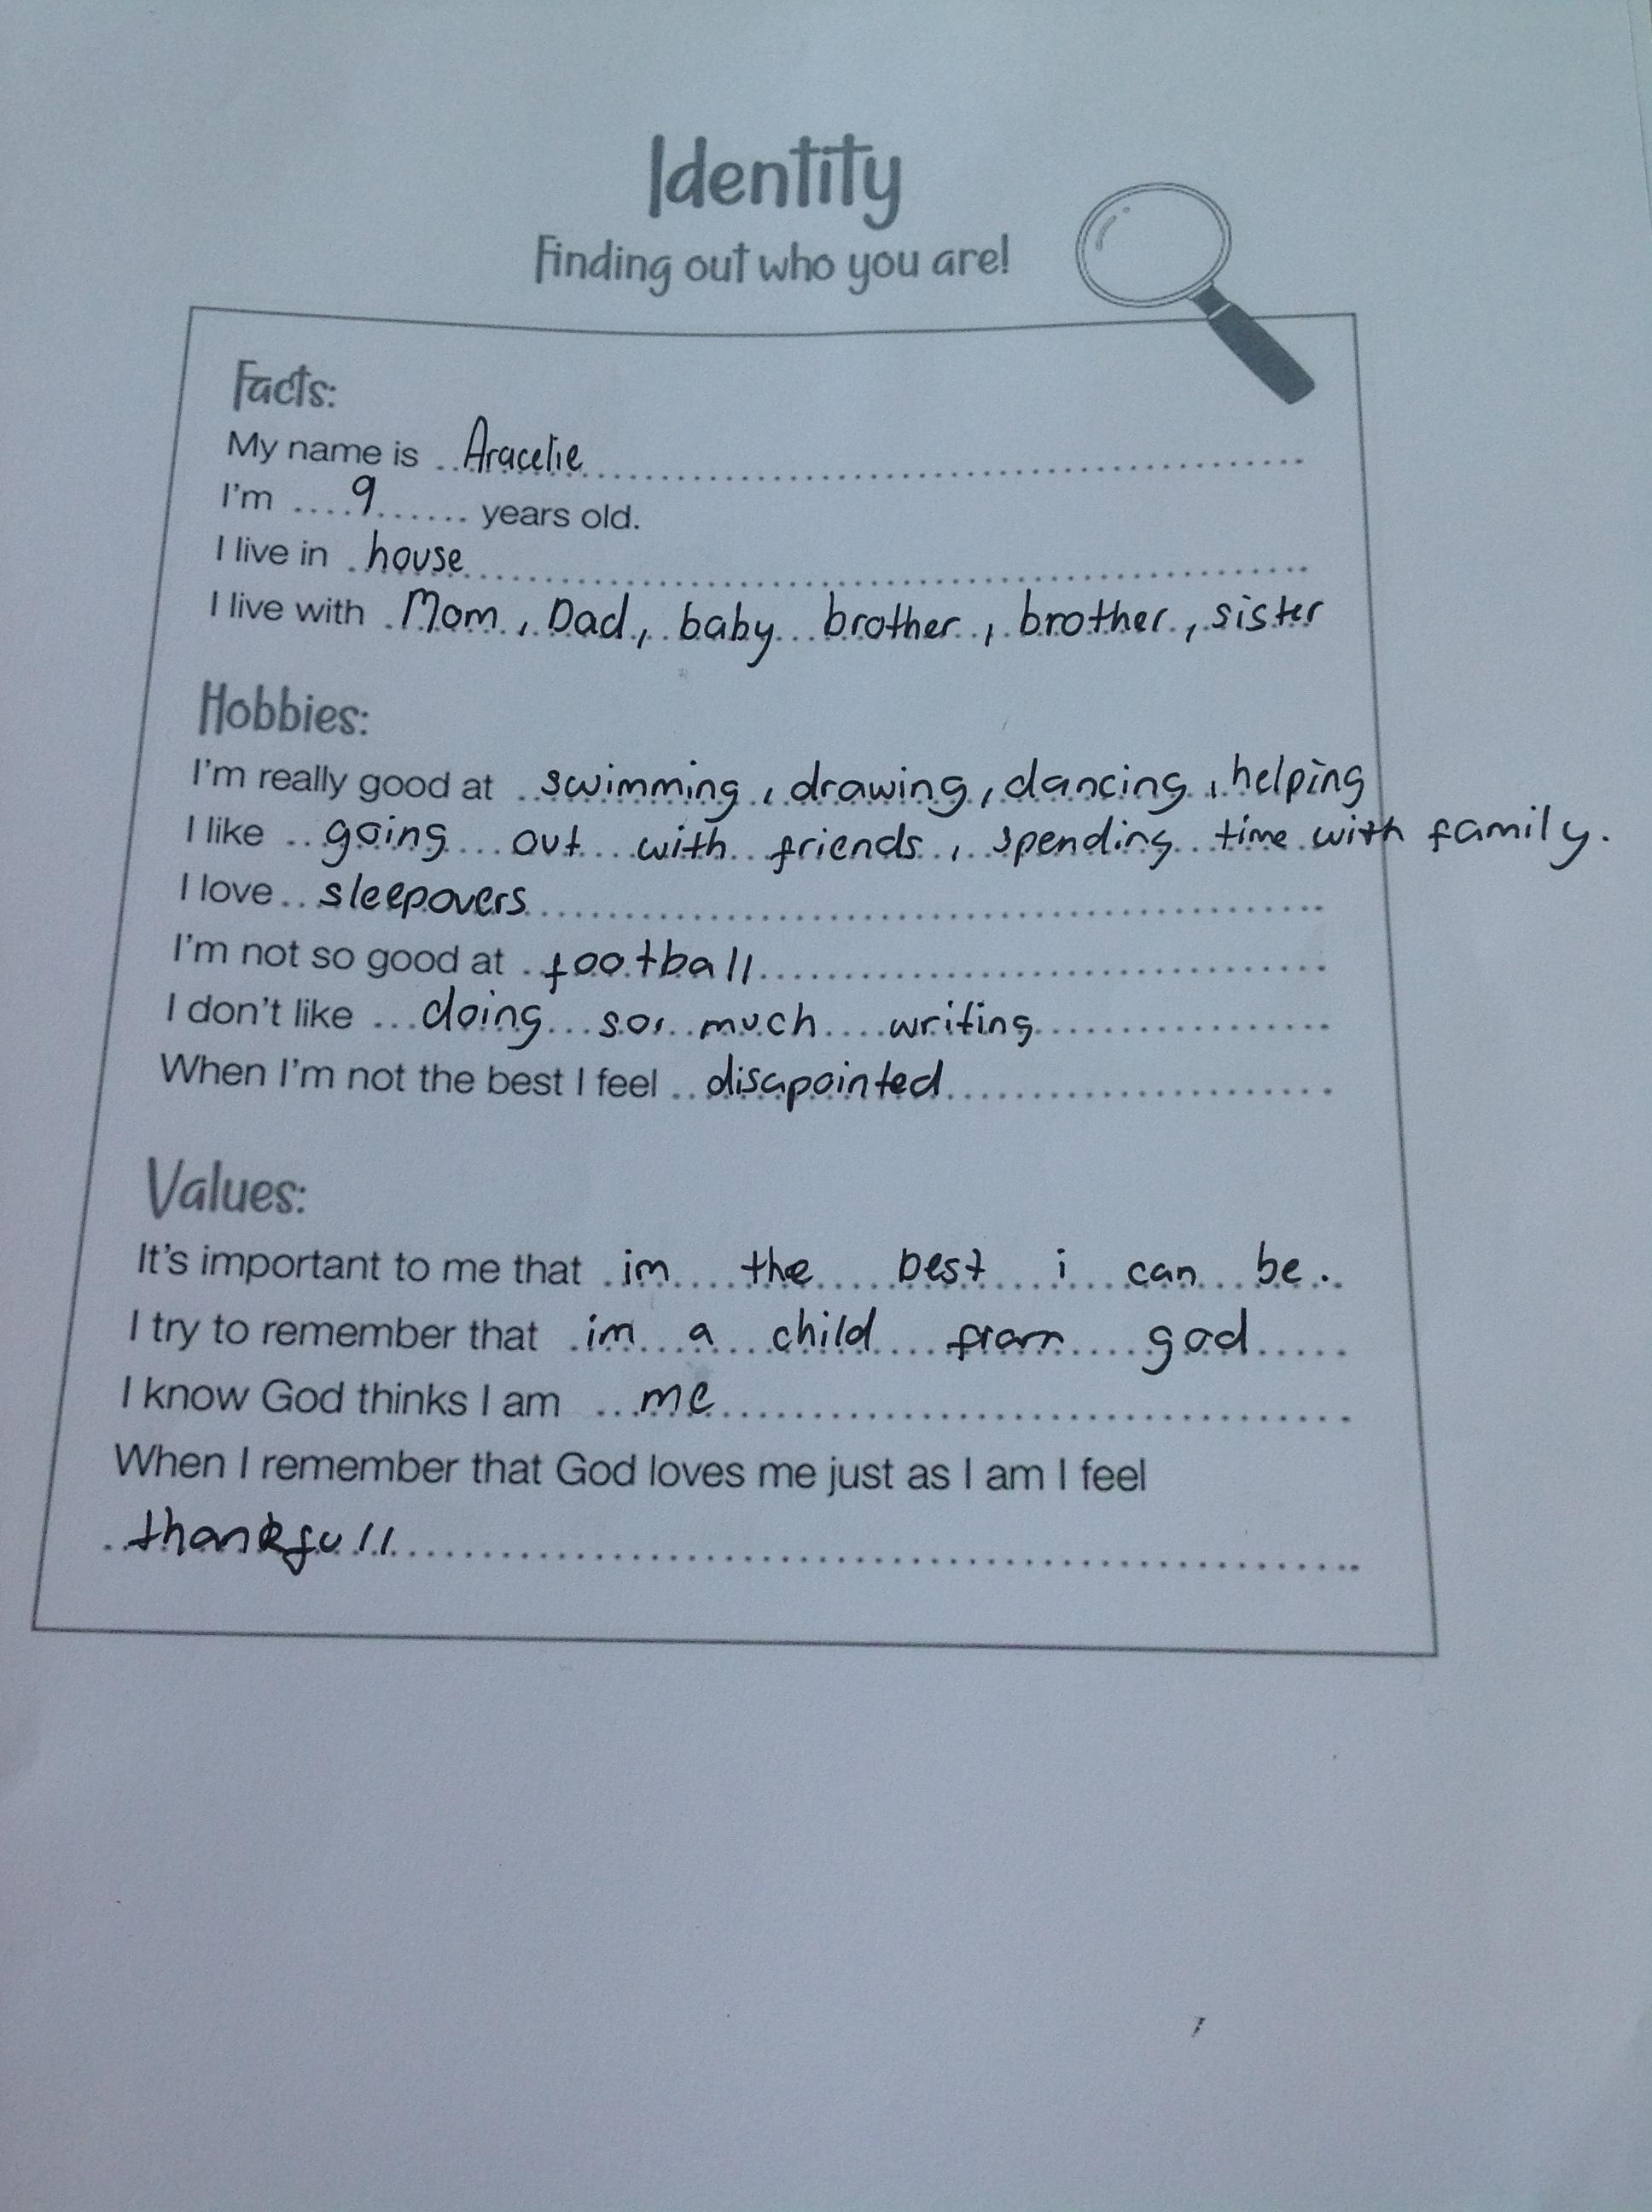 Identity
Finding out who you are!
Facts:
My name is Aracelie
I'm 9 years old.
I live in house
I live with Mom, Dad, baby brother, brother, sister
Hobbies:
I'm really good at swimming, drawing, dancing, helping
I like going out with friends, spending time with family.
I love sleepovers
I'm not so good at football
I don't like doing so much writing
When I'm not the best I feel disapointed
Values:
It's important to me that im the best i can be.
I try to remember that im a child from god
I know God thinks I am me
When I remember that God loves me just as I am I feel
thankfull